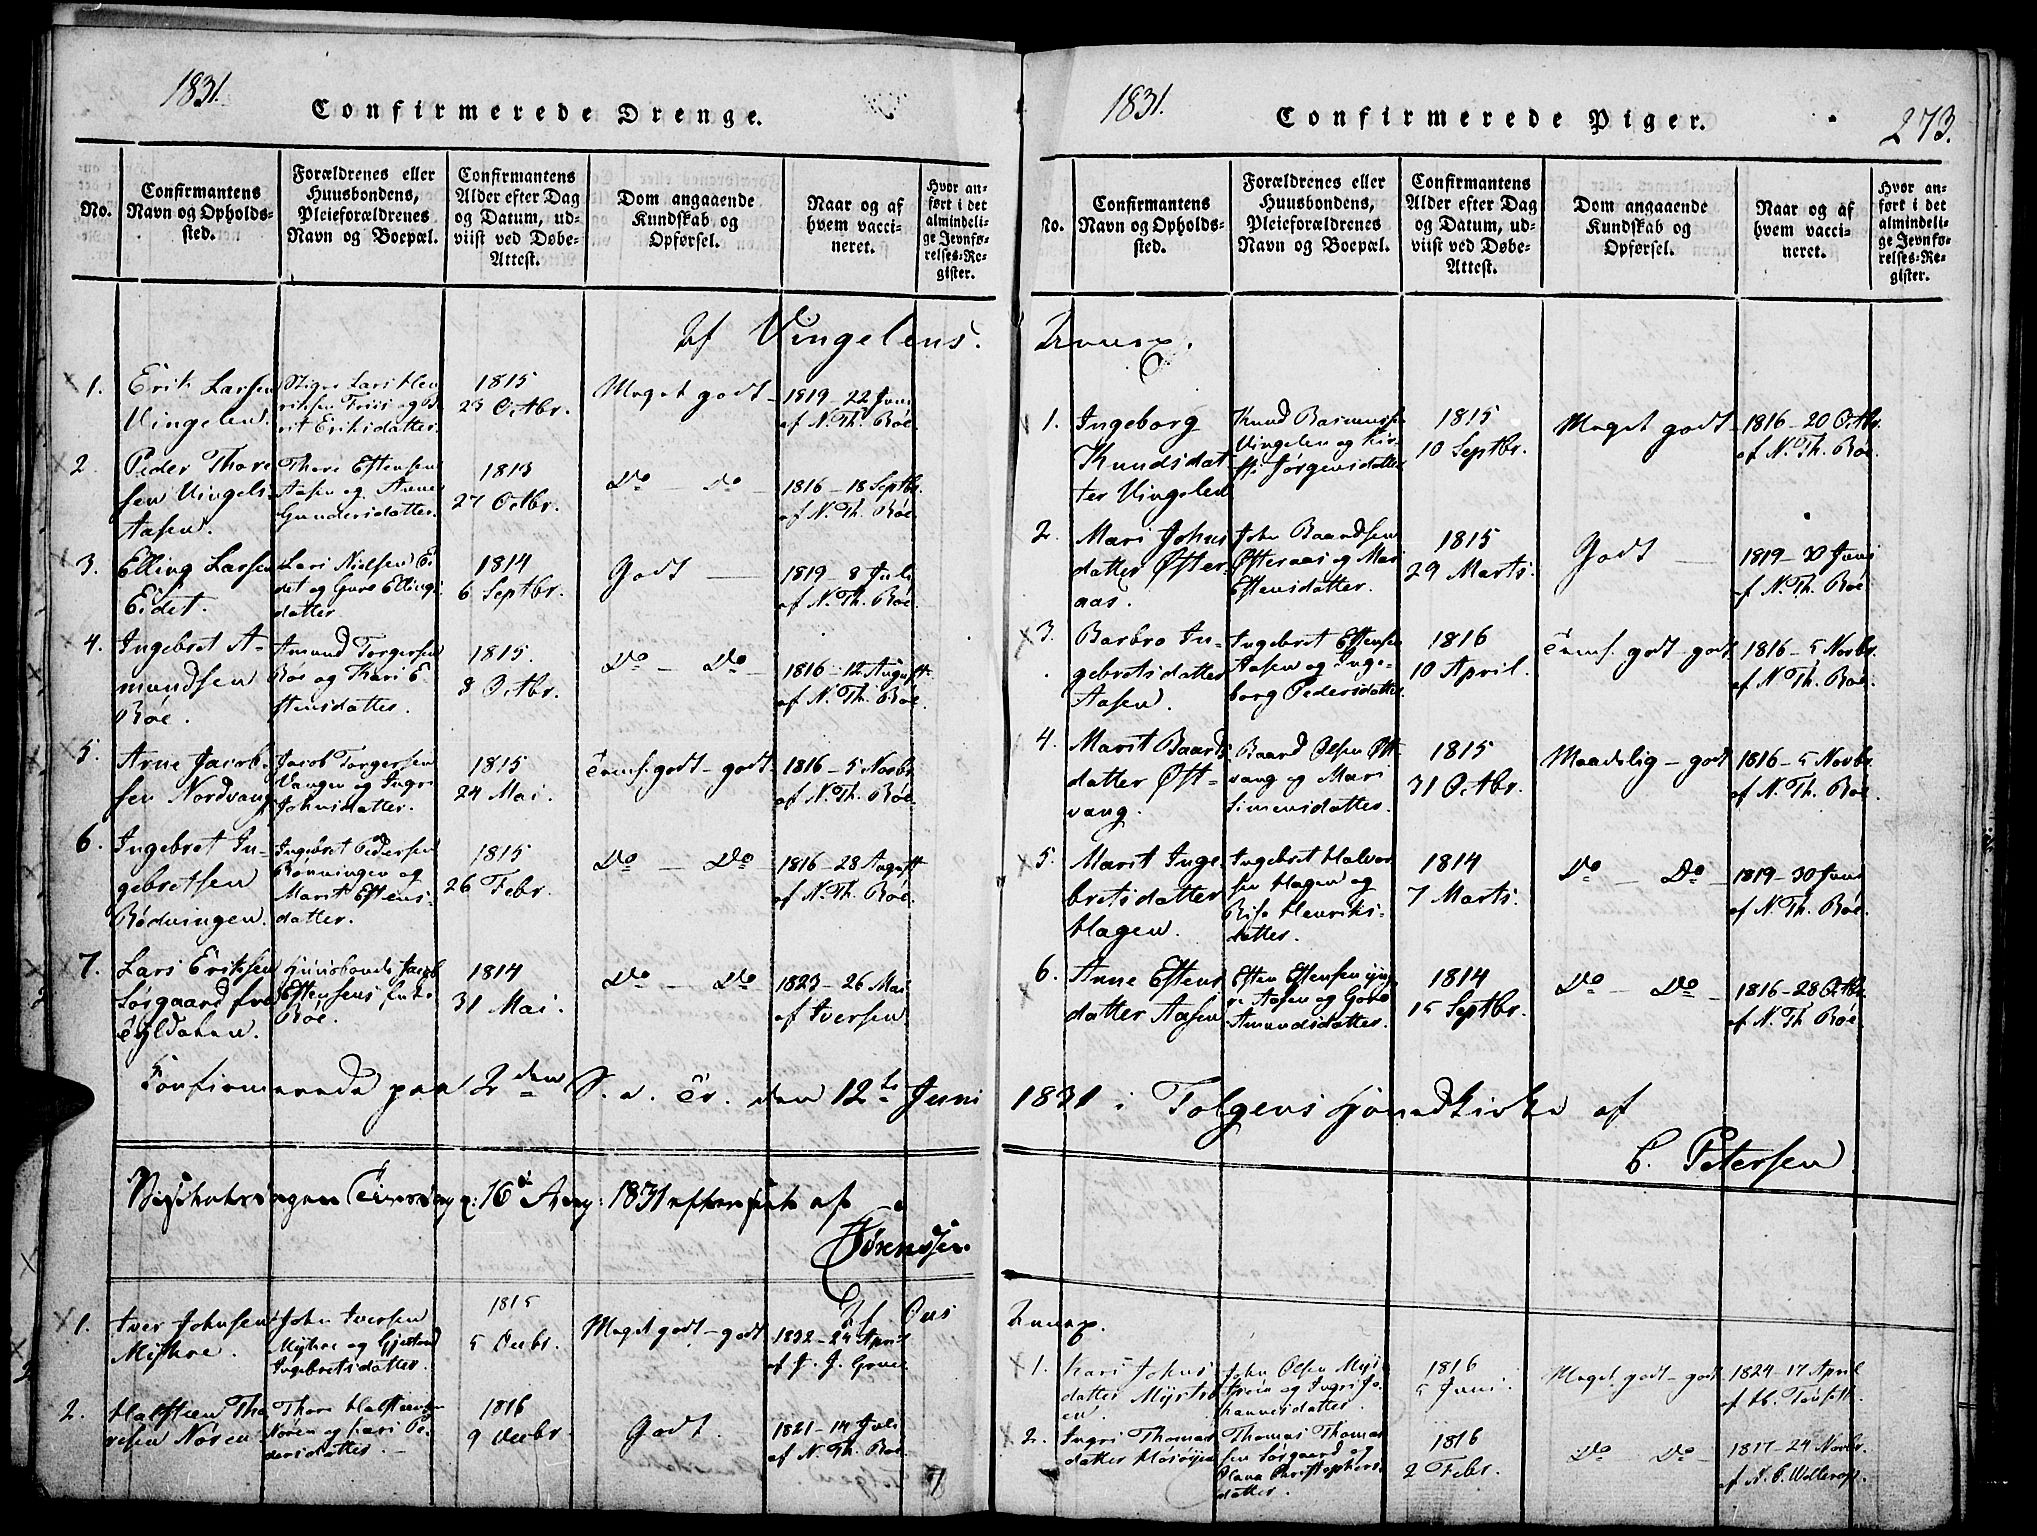 1831.
Confirmerede Drenge.
No.
Confirmantens
Navn og Opholds-
sted.
Forældrenes eller
Huusbondens,
Pleieforældrenes
Navn og Boepæl.
Confirmantens
Alder efter Dag
og Datum, ud-
viist ved Døbe-
Attest.
Dom angaaende
Kundskab og
Opførsel.
Naar og af
hvem vacci-
neret.
Hvor an-
ført i det
almindeli-
ge Jevnfø-
relses-Re-
gister.
Af Vingelens.
1.
Erik Larsen
Vingelen.
Lars Hen
riksen Friis og Be
rit Eriksdatter.
1815
23 Octbr.
Meget godt
1819 - 22 Juni
af N. Th. Røe.
2.
Peder Thore
sen Vingels-
Aasen.
Thore Estensen
Aasen og Anne
Gundersdatter.
1815
27 Octbr.
Do - Do
1816 - 18 Septbr.
af N. Th. Røe.
3.
Elling Larsen
Eidet.
Lars Nielsen Ei
det og Guro Ellings
datter
1814
6 Septbr.
Godt
1819 - 8 Juli
af N. Th. Røe.
4.
Ingebret A-
mundsen
Røe.
Amund Torgersen
Røe og Kari E-
stensdatter.
1815.
8 Octbr.
Do - Do
1816 - 12 August
af N. Th. Røe.
5.
Arne Jacob-
sen Nordvang
Jacob Torgersen
Vangen og Ingri
Johnsdatter.
1815
24 Mai.
Temf. godt - godt
1816 - 5 Novbr.
af N. Th. Røe.
6.
Ingebret In-
gebretsen
Rødningen.
Ingebret Pedersen
Rønningen og
Marit Estens-
datter.
1815
26 Febr.
Do - Do
1816 - 28 August
af N. Th. Røe.
7.
Lars Eriksen
Sørgaard fra
Tyldalen.
Huusbonde Jacob
Estensens Enke
Røe.
1814
31 Mai.
Do - Do
1823 - 26 Mai
af Iversen.
Confirmerede paa 2den S. e. Tr. den 12te Juni
1831 . Aug:
Sørenssen
Af Øus
1.
Iver Johnsen
Myhre.
John Iversen
Myhre og
Ingebretsdatter.
1815
5 Decbr.
Meget godt - godt
1832 - 24 April
af J. J. Grue
2.
Halsteen Tho
resen Nøren
Thore Halsteensen
Nøren og Kari Pe-
dersdatter.
1816
9 Decbr.
Godt.
1821 - 14 Juli
af N. Th. Røe.
1831.
Confirmerede Piger.
273.
No.
Confirmantens
Navn og Opholds-
sted.
Forældrenes eller
Huusbondens,
Pleieforældrenes
Navn og Boepæl.
Confirmantens
Alder efter Dag
og Datum, ud-
viist ved Døbe-
Attest.
Dom angaaende
Kundskab og
Opførsel.
Naar og af
hvem vacci-
neret.
Hvor an-
ført i det
almindeli-
ge Jevnfø-
relses-Re-
gister.
Annex.
1.
Ingeborg
Knudsdat
ter Vingelen
Knud Rasmussen
Vingelen og Kir-
sti Jørgensdatter
1815
10 Septbr.
Meget godt
1816 - 20 Octbr.
af N. Th. Røe.
2.
Mari Johns
datter Øster-
aas.
John Baardsen
Østeraas og Mari
Estensdatter.
1815
29 Marts.
Godt
1819 - 30 Juni
af N. Th. Røe.
3.
Barbro In-
gebretsdatter
Aasen.
Ingebret Estensen
Aasen og Inge-
borg Pedersdatter
1816
10 April.
Temf. godt - godt
1816 - 5 Novbr.
af N. Th. Røe.
4.
Marit Baards
datter Øst-
vang.
Baard Olsen Øst
vang og Mari
Simensdatter.
1815
31 Octbr.
Maadelig - godt
1816 - 5 Novbr.
af N. Th. Røe.
5.
Marit Inge
bretsdatter
Hagen.
Ingebret Halvor
sen Hagen og
Henriks-
datter.
1814
7 Marts.
Do - Do
1819 - 30 Juni
af N. Th. Røe.
6.
Anne Estens
datter Aasen
Esten Estensen yng-
re Aasen og Goro
Amundsdatter.
1814
15 Septbr.
Do - Do
1816 - 28 Octbr.
af N. Th. Røe.
1831 i Tolgens Hovedkirke af
C. Petersen
Annex.
1.
Kari Johns
datter Myrtrø
en.
John Olsen Myr
trøen og Ingri Jo-
hannesdatter.
1816
5 Juni.
Meget godt - godt
1824 - 17 April
af H. Tønseth.
2.
Ingri Thomas
datter Mosøien
Thomas Thomas
sen Sørgaard og
Olava Christophers
datter.
1816
2 Febr.
Do Do
1817 - 24 Novbr.